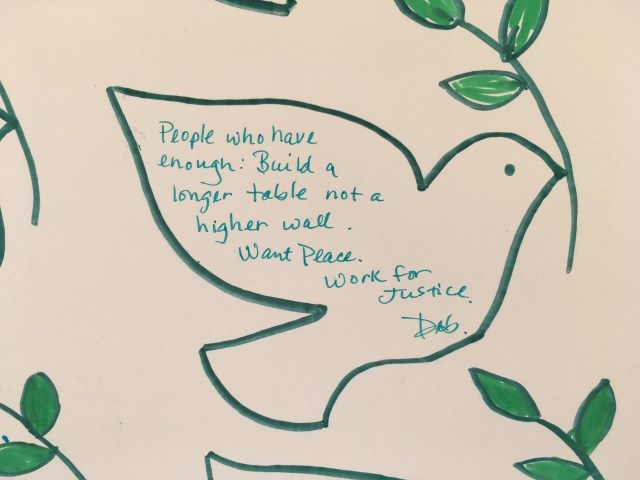 People who have
enough: Build a
longer table not a
higher wall.
Want Peace.
Work for
Justice.
Deb.